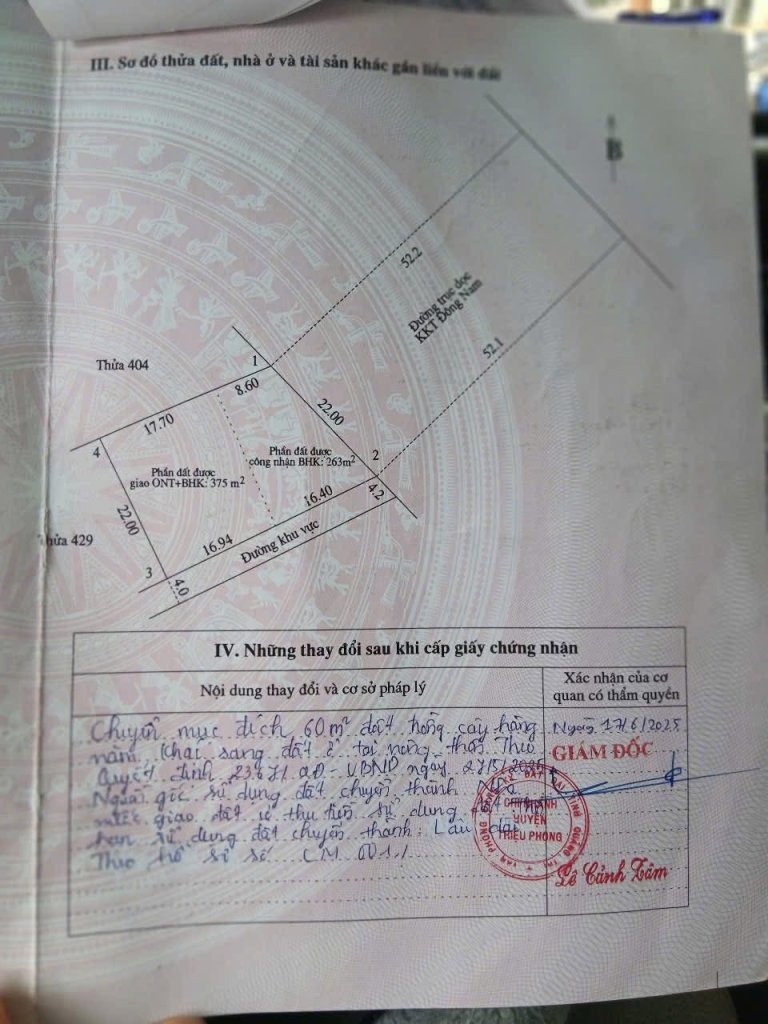 III. Sơ đồ thửa đất, nhà ở và tài sản khác gắn liền với đất
B
52.2
Đường trục dọc
KKT Đông Nam
52.1
Thửa 404
1
8.60
17.70
22.00
4
Phần đất được
công nhận BHK: 263m²
2
Phần đất được
giao ONT+BHK: 375 m²
4.2
16.40
22.00
16.94
Đường khu vực
hửa 429
3
4.0
IV. Những thay đổi sau khi cấp giấy chứng nhận
Nội dung thay đổi và cơ sở pháp lý
Xác nhận của cơ
quan có thẩm quyền
Chuyển mục đích 60m² đất trồng cây hàng
năm khác sang đất ở tại nông thôn Theo
Quyết định 2367/QĐ-UBND ngày 27/5/2025
Nguồn gốc sử dụng đất chuyển thành
nước giao đất có thu tiền sử dụng đất
hạn sử dụng đất chuyển thành: Lâu dài
Theo hồ sơ số CM 001./
Ngày 17/6/2025
GIÁM ĐỐC
CHI NHÁNH
HUYỆN
TRIỆU PHONG
Lê Cảnh Tâm